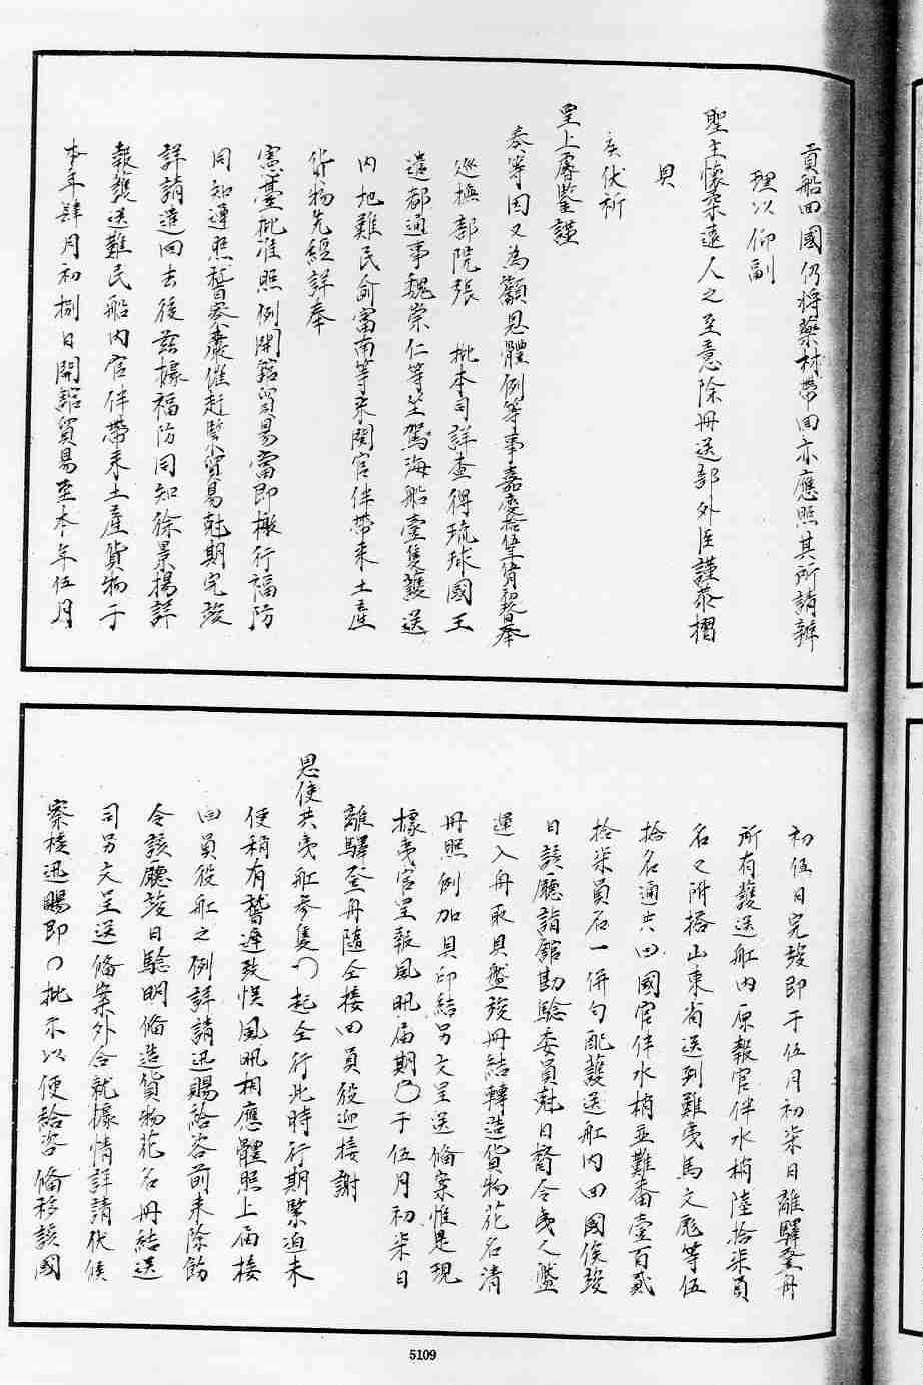 貢船回國仍將藥材帶回亦應照其所請辦
理以仰副
聖主懷柔遠人之至意除冊送部外臣謹恭摺
具
奏伏祈
皇上睿鑒謹
奏等因又為籲恩體例等事嘉慶拾伍年肆月初叁日奉
巡撫部院張 批本司詳查得琉球國王
遣都通事魏榮仁等坐駕海船壹隻護送
內地難民俞富南等來閩官伴帶來土產
貨物先經詳奉
憲臺批准照例開館貿易當即檄行福防
同知遵照稽察嚴催赶緊貿易尅期完竣
詳請遣回去後茲據福防同知徐景揚詳
報護送難民船內官伴帶來土產貨物于
本年肆月初捌日開館貿易至本年伍月
初伍日完竣即于伍月初柒日離驛登舟
所有護送舡內原報官伴水梢陸拾柒員
名又附搭山東省送到難夷馬文彪等伍
拾名通共回國官伴水梢並難番壹百貳
拾柒員名一併勻配護送舡內回國俟竣
日該廳詣館勘驗委員尅日督令夷人盤
運入舟取具盤竣冊結轉造貨物花名清
冊照例加具印結另文呈送備案惟是現
據夷官呈報風汛届期〇于伍月初柒日
離驛登舟隨全接回員役迎接謝
恩使共夷舡叁隻〇起全行此時行期緊迫未
便稍有稽遲致悞風汛相應體照上届接
回員役舡之例詳請迅賜給咨前來除飭
令該廳竣日驗明備造貨物花名冊結送
司另文呈送備案外合就據情詳請伏候
察核迅賜即〇批示以便給咨備移該國
5109